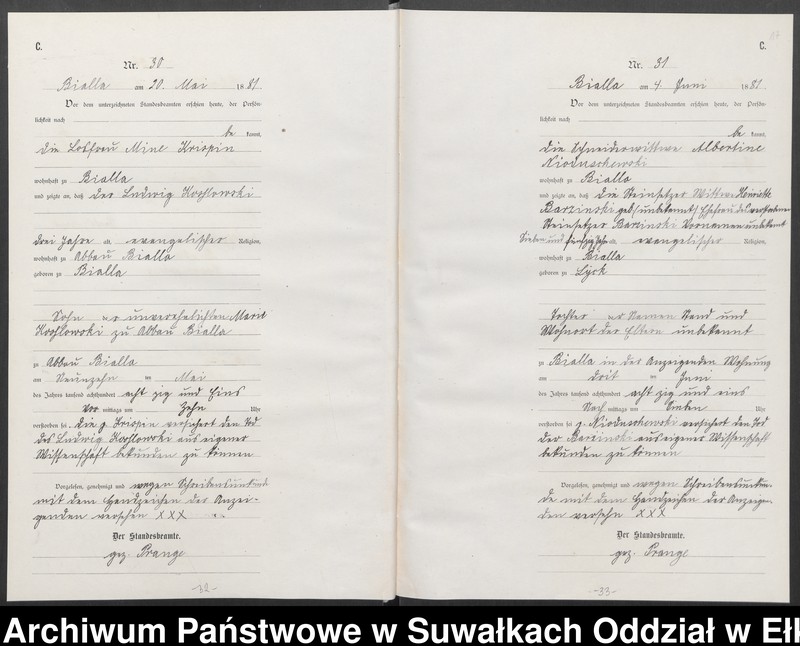 C.
Nr. 30
Bialla am 20. Mai 1881
Vor dem unterzeichneten Standesbeamten erschien heute, der Persön-
lichkeit nach
be kannt,
die Losfrau Mine Kriopin
wohnhaft zu Bialla
und zeigte an, daß der Ludwig Kozlowski
drei Jahre alt, evangelischer Religion,
wohnhaft zu Abbau Bialla
geboren zu Bialla
Sohn der unverehelichten Marie
Kozlowski zu Abbau Bialla
zu Abbau Bialla
am Neunzehn ten Mai
des Jahres tausend achthundert acht zig und Eins
Vor mittags um Zehn Uhr
verstorben sei. Die p. Kriopin versichert den Tod
des Ludwig Kozlowski aus eigener
Wissenschaft bekunden zu können
Vorgelesen, genehmigt und wegen Schreibensunkunde
mit dem Handzeichen der Anzei-
genden versehen XXX
Der Standesbeamte.
gez. Prange
-32-
C.
Nr. 31
Bialla am 4 Juni 1881
Vor dem unterzeichneten Standesbeamten erschien heute, der Persön-
lichkeit nach
be kannt,
die Schneiderwittwe Albertine
Nioduschewski
wohnhaft zu Bialla
und zeigte an, daß die Steinsetzer Wittwe Henriette
Barzinski geb. (unbekannt) Ehefrau des verstorbenen
Steinsetzer Barzinski Vornamen unbekannt
Sieben und fünfzig Jahr alt, evangelischer Religion,
wohnhaft zu Bialla
geboren zu Lyck
Tochter der Namen Stand und
Wohnort der Eltern unbekannt
zu Bialla in der Anzeigenden Wohnung
am drit ten Juni
des Jahres tausend achthundert acht zig und eins
Nach mittags um Sieben Uhr
verstorben sei p. Nioduschewski versichert den Tod
der Barzinski aus eigener Wissenschaft
bekunden zu können
Vorgelesen, genehmigt und wegen Schreibensunkun-
de mit dem Handzeichen der Anzeigen-
den versehn XXX
Der Standesbeamte.
gez. Prange
-33-
Archiwum Państwowe w Suwałkach Oddział w Ełk